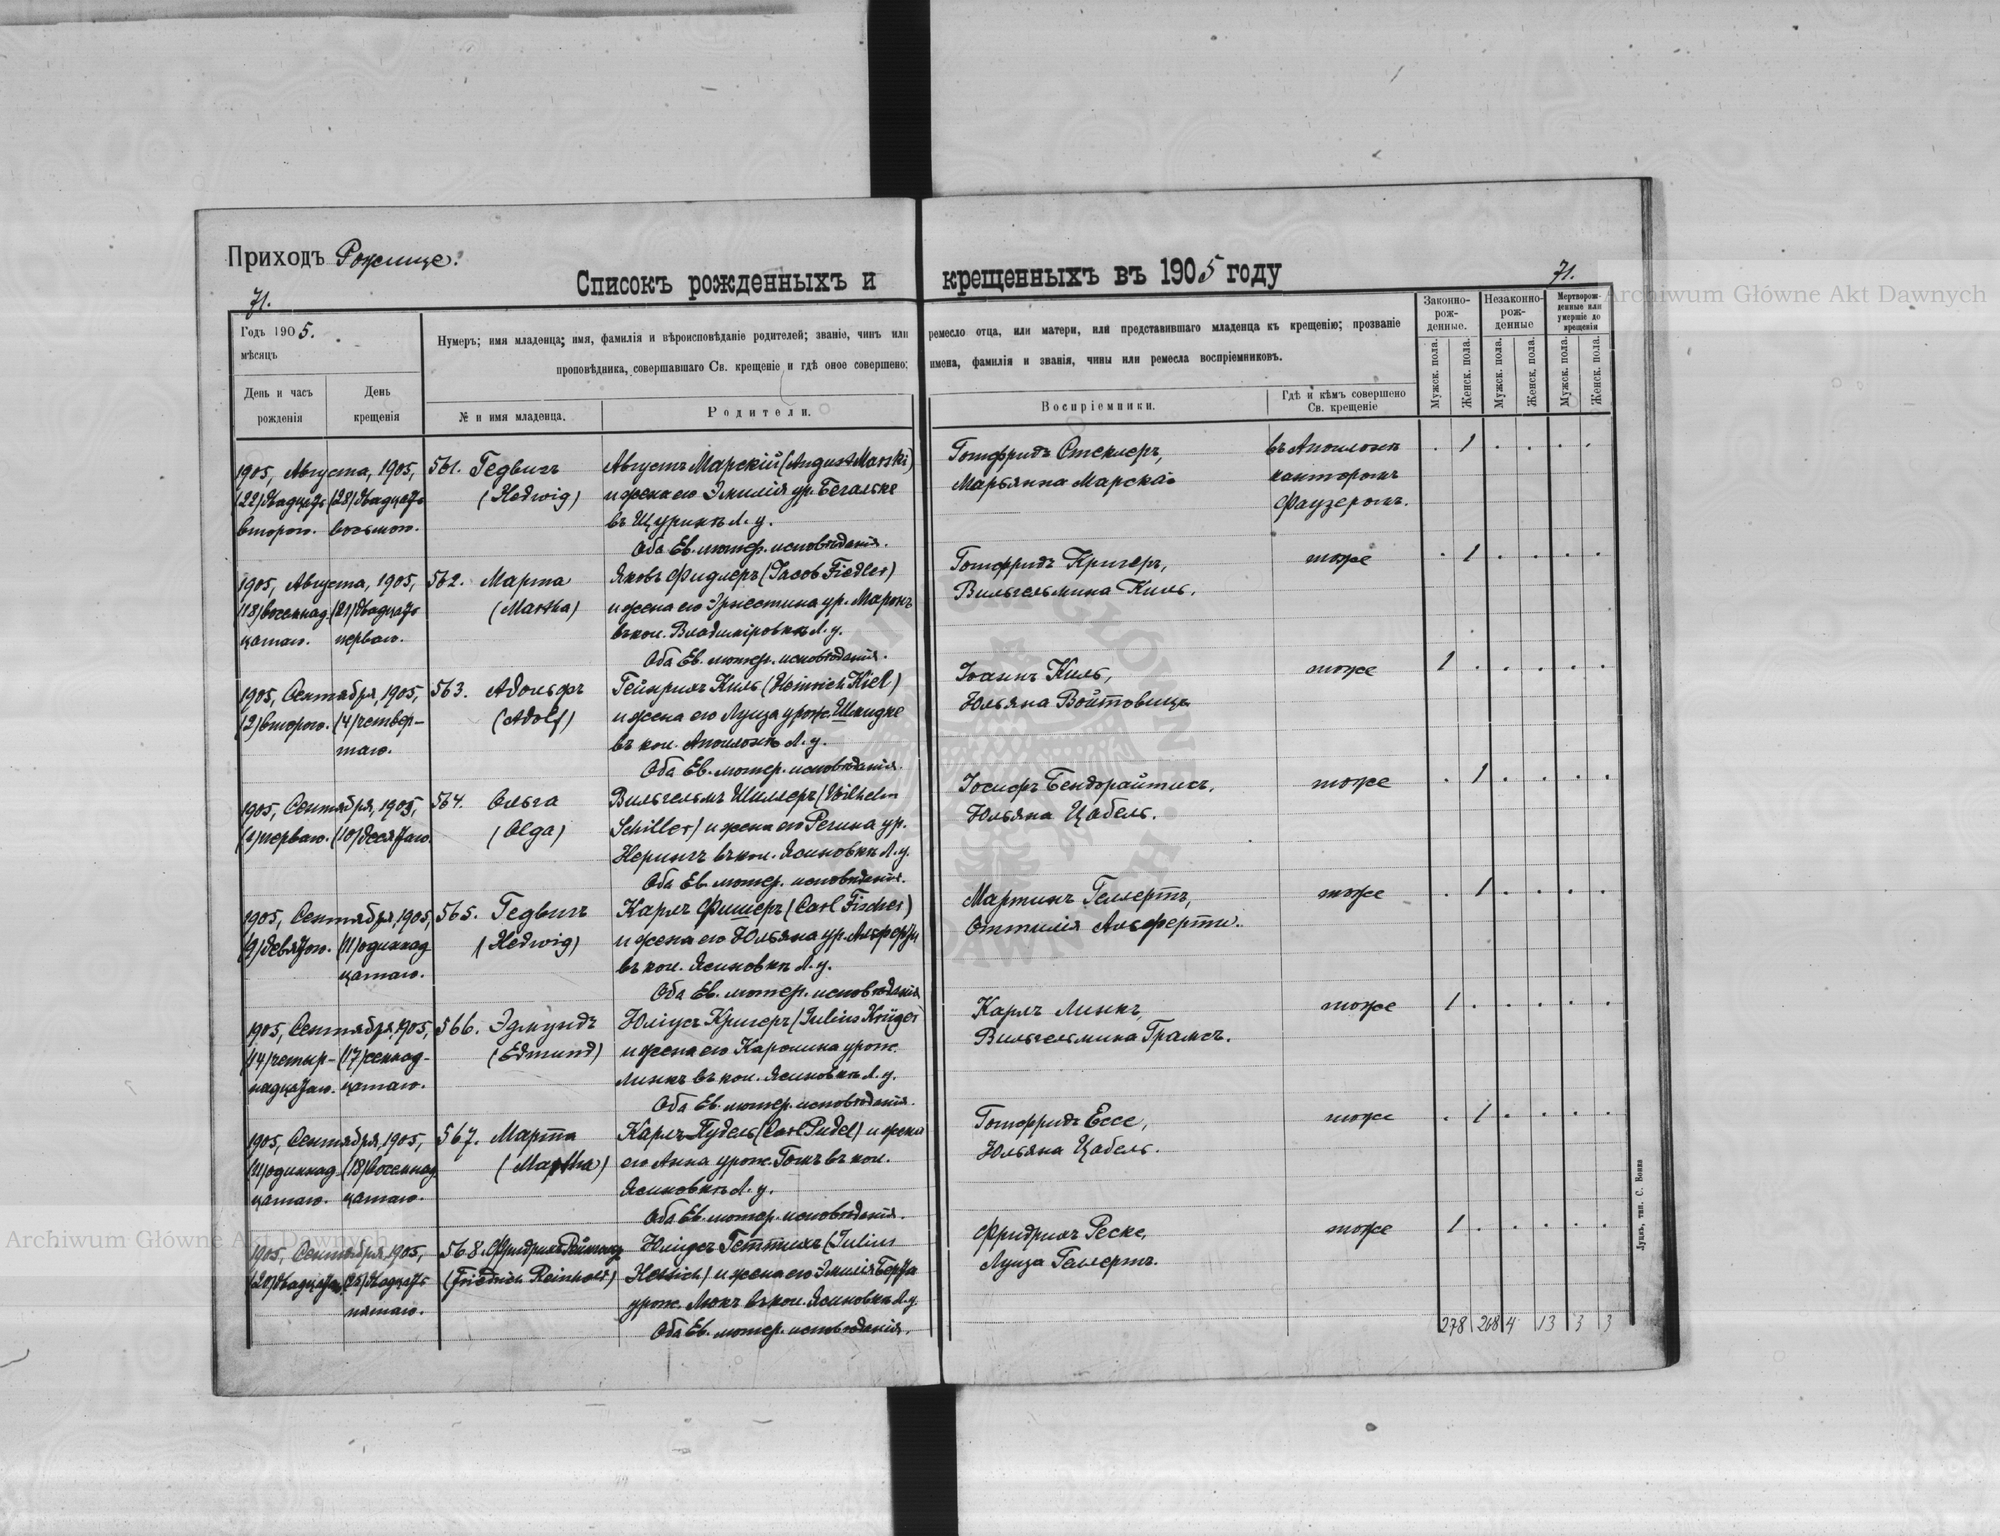 Приходъ Рожище.
Списокъ рожденныхъ и крещенныхъ въ 1905 году
71.
71.
Годъ 1905.
мѣсяцъ
День и часъ рожденія
День крещенія
Нумеръ; имя младенца; имя, фамилія и вѣроисповѣданіе родителей; званіе, чинъ или ремесло отца, или матери, или представившаго младенца къ крещенію; прозваніе
проповѣдника, совершавшаго Св. крещеніе и гдѣ оное совершено; имена, фамилія и званія, чины или ремесла воспріемниковъ.
№ и имя младенца.
Родители.
Воспріемники.
Гдѣ и кѣмъ совершено Св. крещеніе
Законно-рож-денные.
Незаконно-рож-денные
Мертворож-денные или умершіе до крещенія
Мужск. пола.
Женск. пола.
Мужск. пола.
Женск. пола.
Мужск. пола.
Женск. пола.
1905, Августа, 1905, 561. Гедвигъ Августъ Марскій (August Marski) Готфридъ Стеклеръ, въ 1
(22) двадцать (28) двадцать (Hedwig) и жена его Эмилія ур. Бегальке Марьянна Марская канторомъ
второго. восьмого. въ Щуринѣ Л. у. Фаузеромъ.
Оба Ев. лютер. исповѣданія.
1905, Августа, 1905, 562. Марта Яковъ Фидлеръ (Jacob Fiedler) Готфридъ Кригеръ, тоже 1
(18) восемнад- (21) двадцать (Martha) и жена его Эрнестина ур. Марокъ Вильгельмина Киль.
цатаго. перваго. въ кол. Владиміровкѣ Л. у.
Оба Ев. лютер. исповѣданія.
1905, Сентября, 1905, 563. Адольфъ Гейнрихъ Киль (Heinrich Kiel) Іоаннъ Киль, тоже 1
(2) второго. (4) четвер- (Adolf) и жена его Луиза урож. Шмидке Юльяна Войтовицъ
таго. въ кол. Л. у.
Оба Ев. лютер. исповѣданія.
1905, Сентября, 1905, 564. Ольга Вильгельмъ Шиллеръ (Wilhelm Іосифъ Бендорайтисъ, тоже 1
(1) перваго. (10) десятаго. (Olga) Schiller) и жена его Регина ур. Юльяна Цабель.
Нерингъ въ кол. Ясиновкѣ Л. у.
Оба Ев. лютер. исповѣданія.
1905, Сентября, 1905, 565. Гедвигъ Карлъ Фишеръ (Carl Fischer) Мартинъ Геллертъ, тоже 1
(9) девятого. (11) одиннад- (Hedwig) и жена его Юльяна ур. Оттилія Альферти.
цатаго. въ кол. Ясиновкѣ Л. у.
Оба Ев. лютер. исповѣданія
1905, Сентября, 1905, 566. Эдмундъ Юліусъ Кригеръ (Julius Krüger Карлъ Линкъ, тоже 1
(14) четыр- (17) семнад- (Edmund) и жена его Каролина урож. Вильгельмина Грамсъ.
надцатаго. цатаго. Линкъ въ кол. Ясиновкѣ Л. у.
Оба Ев. лютер. исповѣданія.
1905, Сентября, 1905, 567. Марта Карлъ Пудель (Carl Pudel) и жена Готфридъ Ессе, тоже 1
(11) одиннад- (18) восемнад- (Martha) его Анна урож. въ кол. Юльяна Цабель.
цатаго. цатаго. Ясиновкѣ Л. у.
Оба Ев. лютер. исповѣданія.
1905, Сентября, 1905, 568. Фридрихъ Рейнгольдъ Юліусъ Геттихъ (Julius Фридрихъ Реске, тоже 1
(20) двадцатаго (25) двадцать (Friedrich Reinhold) Hettich) и жена его Эмилія Берта Луиза Геллертъ.
пятаго. урож. Люкъ въ кол. Ясиновкѣ Л. у.
Оба Ев. лютер. исповѣданія.
278 268 4 13 3 3
Луцкъ, тип. С. Бонка
Archiwum Główne Akt Dawnych
Archiwum Główne Akt Dawnych
Archiwum Główne Akt Dawnych